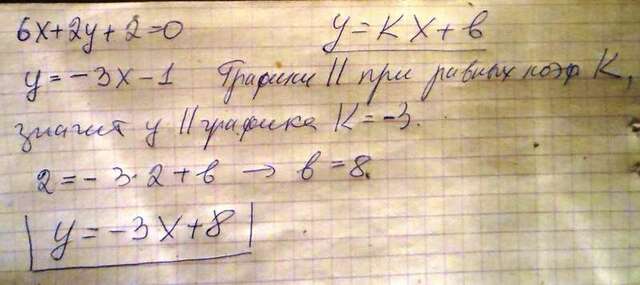 6x+2y+2=0 y=Kx+в
y=-3x-1 Графики || при равных коэф K,
значит у || графика K=-3.
2=-3·2+в → в=8.
y=-3x+8